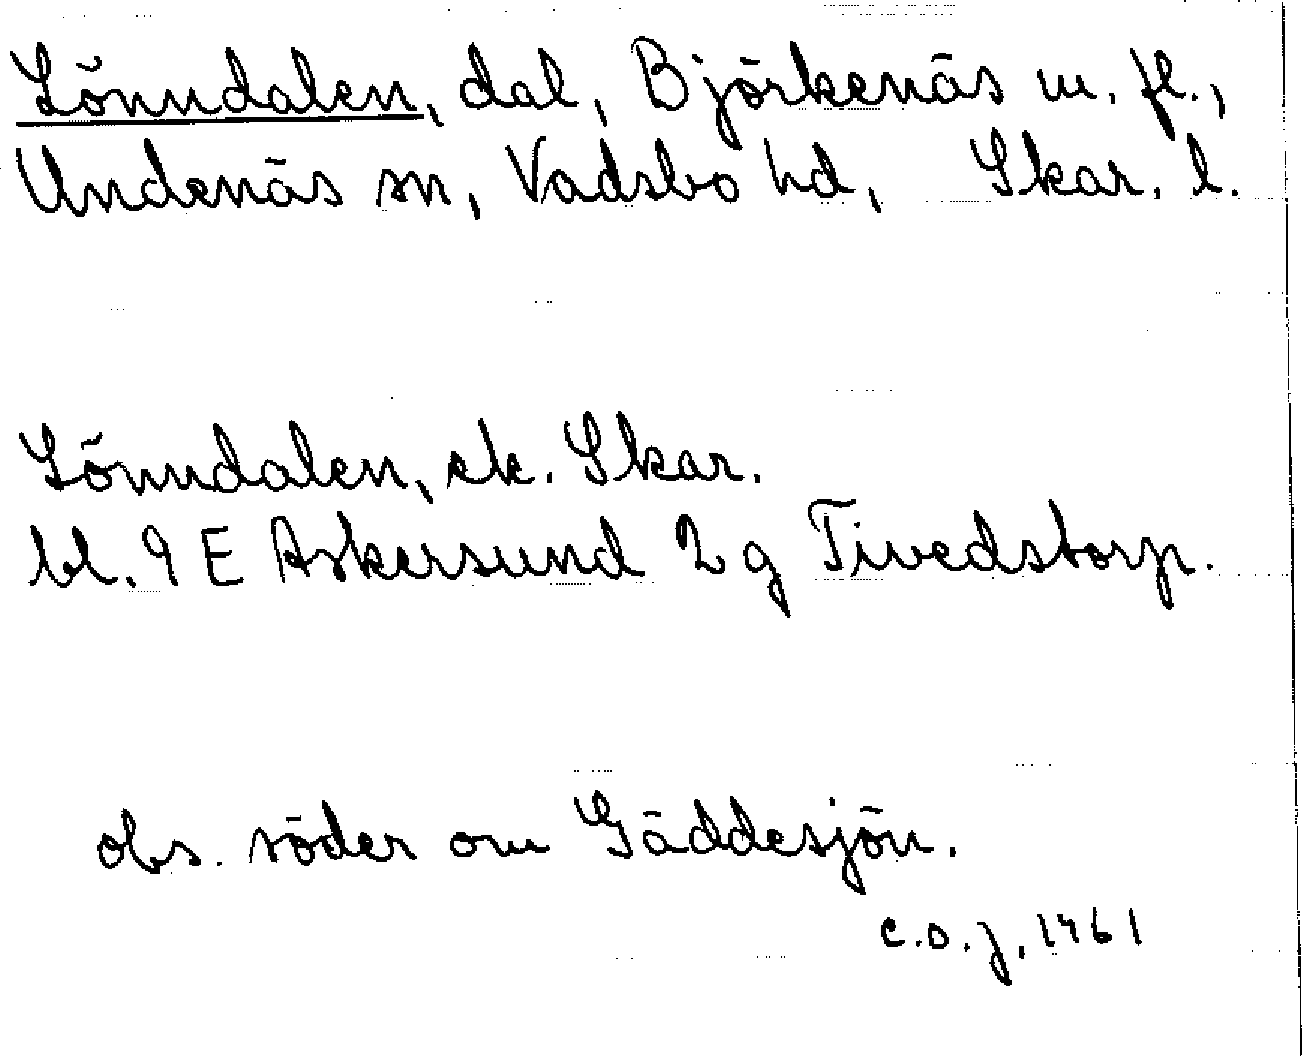 Lönndalen, dal, Björkenäs m. fl.,
Undenäs sn, Vadsbo hd, Skar. l.
Lönndalen, ek. Skar.
bl. 9 E Askersund 2 g Tivedstorp.
obs. söder om Gäddesjön.
C.O.J. 1961